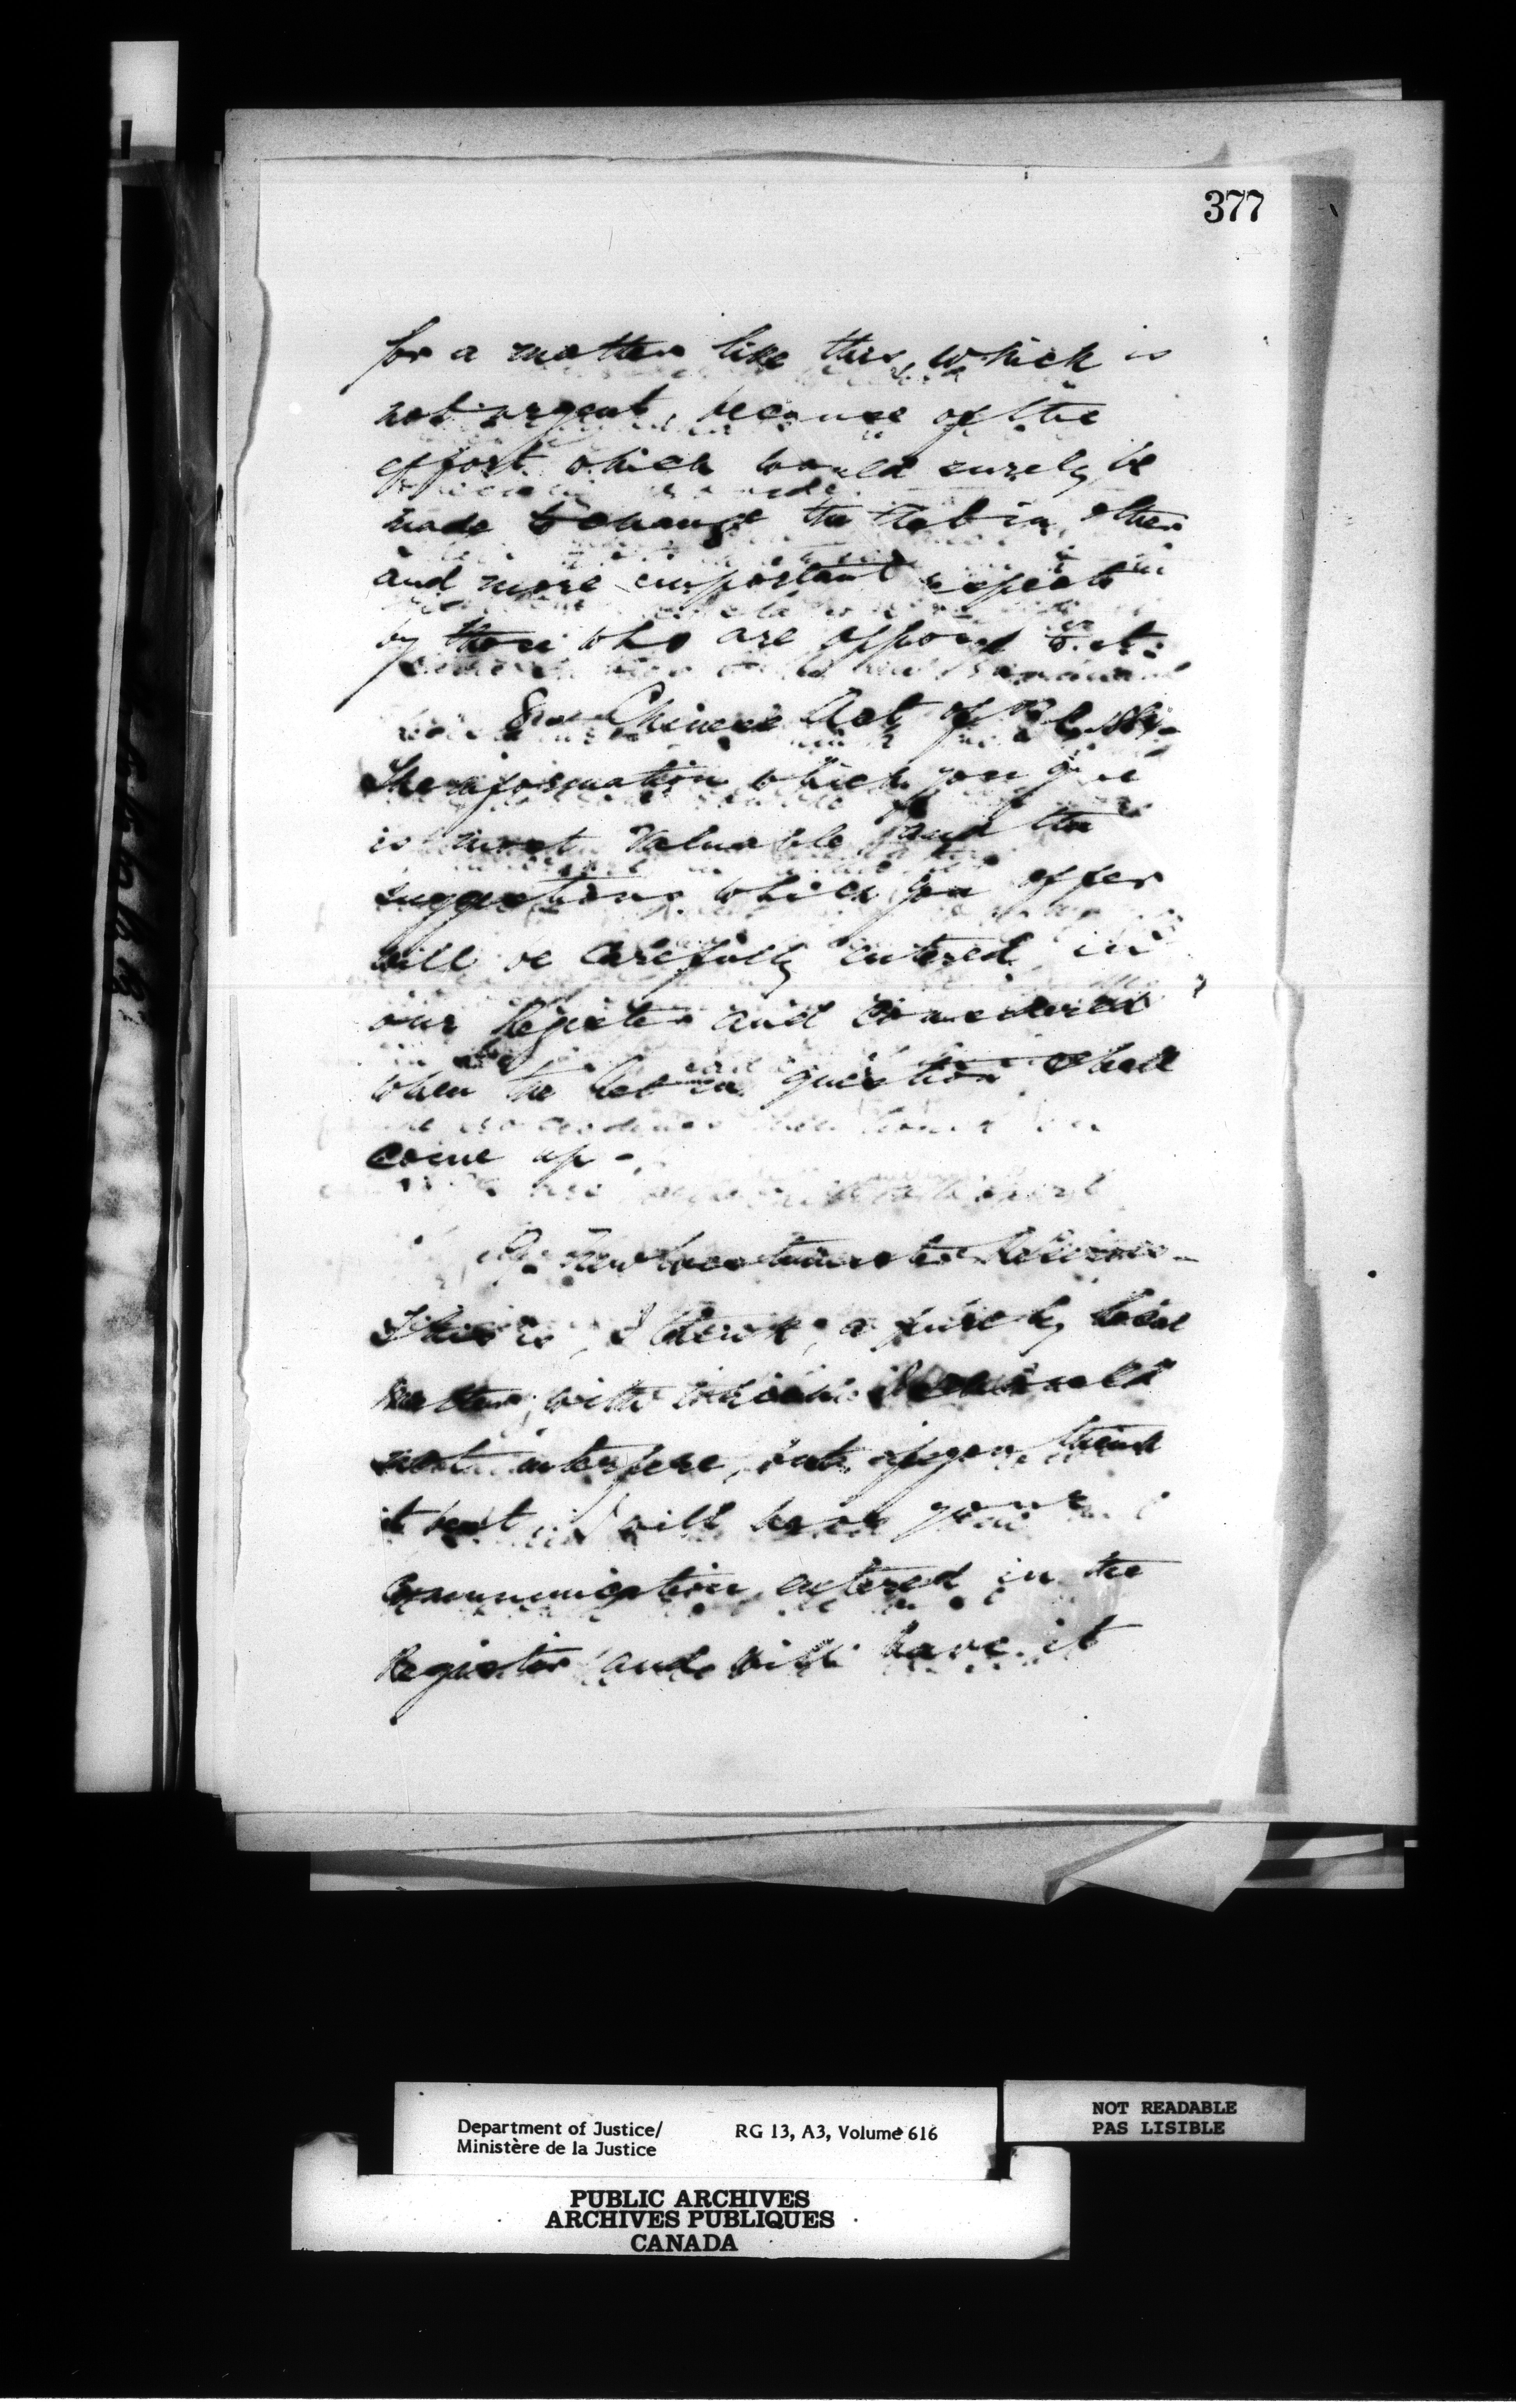 377
for a matter like this, which is
not urgent, because of the
effort which would surely be
made to change the Act in other
and more important respects
by those who are opposed to it.
Chinese Act of B.C.
The information which you give
is most valuable and the
suggestions which you offer
will be carefully entered in
our Register and considered
when the Act in question shall
come up -
Re New
This is, I think, a purely local
matter, with which I should
not interfere, but if you think
it best, I will have your
communication entered in the
Register and will have it
Department of Justice/
Ministère de la Justice
RG 13, A3, Volume 616
NOT READABLE
PAS LISIBLE
PUBLIC ARCHIVES
ARCHIVES PUBLIQUES
CANADA